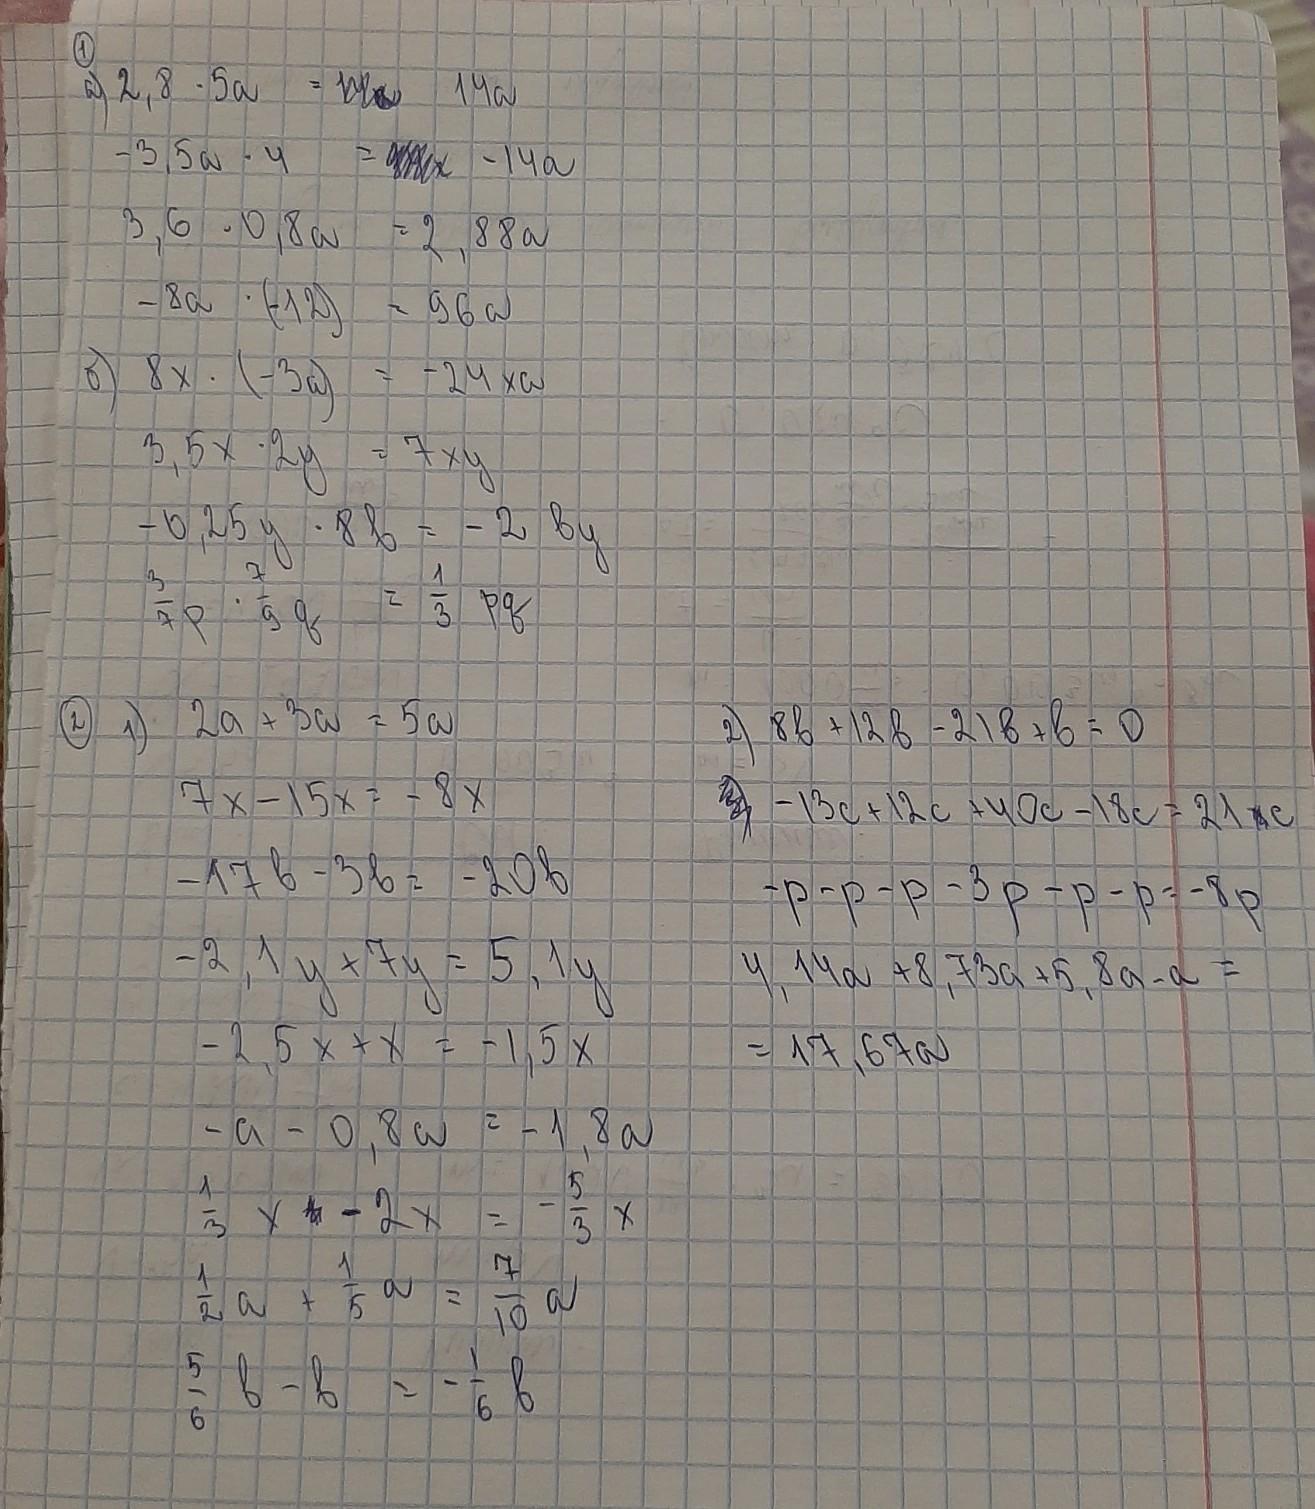 1
а) 2,8 · 5a = 14a
-3,5a · 4 = -14a
3,6 · 0,8a = 2,88a
-8a · (-12) = 96a
б) 8x · (-3a) = -24xa
3,5x · 2y = 7xy
-0,25y · 8b = -2by
3/7 p · 7/9 q = 1/3 pq
2 1) 2a + 3a = 5a
7x - 15x = -8x
-17b - 3b = -20b
-2,1y + 7y = 5,1y
-2,5x + x = -1,5x
-a - 0,8a = -1,8a
1/3 x - 2x = -5/3 x
1/2 a + 1/5 a = 7/10 a
5/6 b - b = -1/6 b
2) 8b + 12b - 21b + b = 0
-13c + 12c + 40c - 18c = 21c
-p - p - p - 3p - p - p = -8p
4,14a + 8,73a + 5,8a - a =
= 17,67a